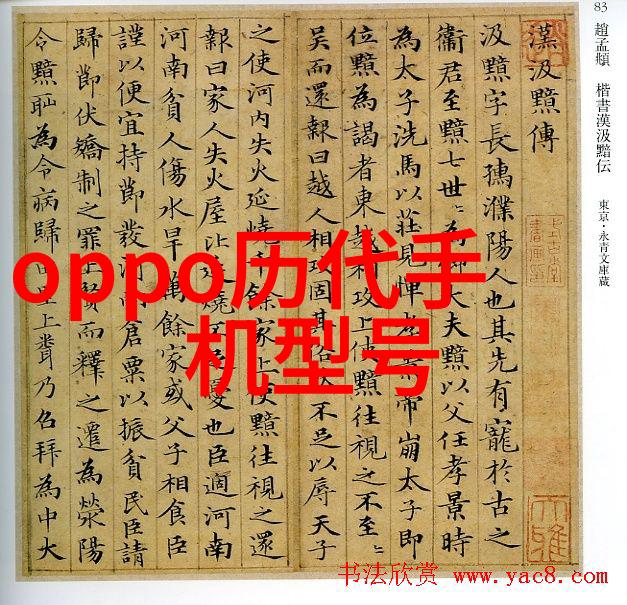 83 趙孟頫 楷書漢汲黯伝 東京·永青文庫蔵
漢汲黯傳
汲黯字長孺濮陽人也其先有寵於古之
衛君至黯七世〻為卿大夫黯以父任孝景時
為太子洗馬以莊見憚孝景帝崩太子即
位黯為謁者東越相攻上使黯往視之不至〻
吳而還報曰越人相攻固其俗然不足以辱天子
之使河內失火延燒千餘家上使黯往視之還
報曰家人失火屋比延燒不足憂也臣適河南
河南貧人傷水旱萬餘家或父子相食臣
謹以便宜持節發河南倉粟以振貧民臣請
歸節伏矯制之罪上賢而釋之遷為滎陽
令黯恥為令病歸田里上聞乃召拜為中大
oppo历代手
机型号
书法欣赏 www.yac8.com